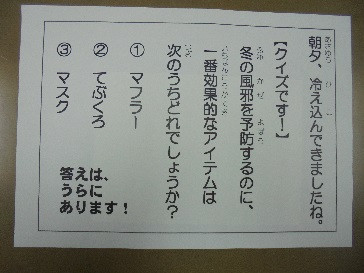 朝夕、冷え込んできましたね。
【クイズです!】
冬の風邪を予防するのに、
一番効果的なアイテムは
次のうちどれでしょうか?
① マフラー
② てぶくろ
③ マスク
答えは、
うらに
あります!